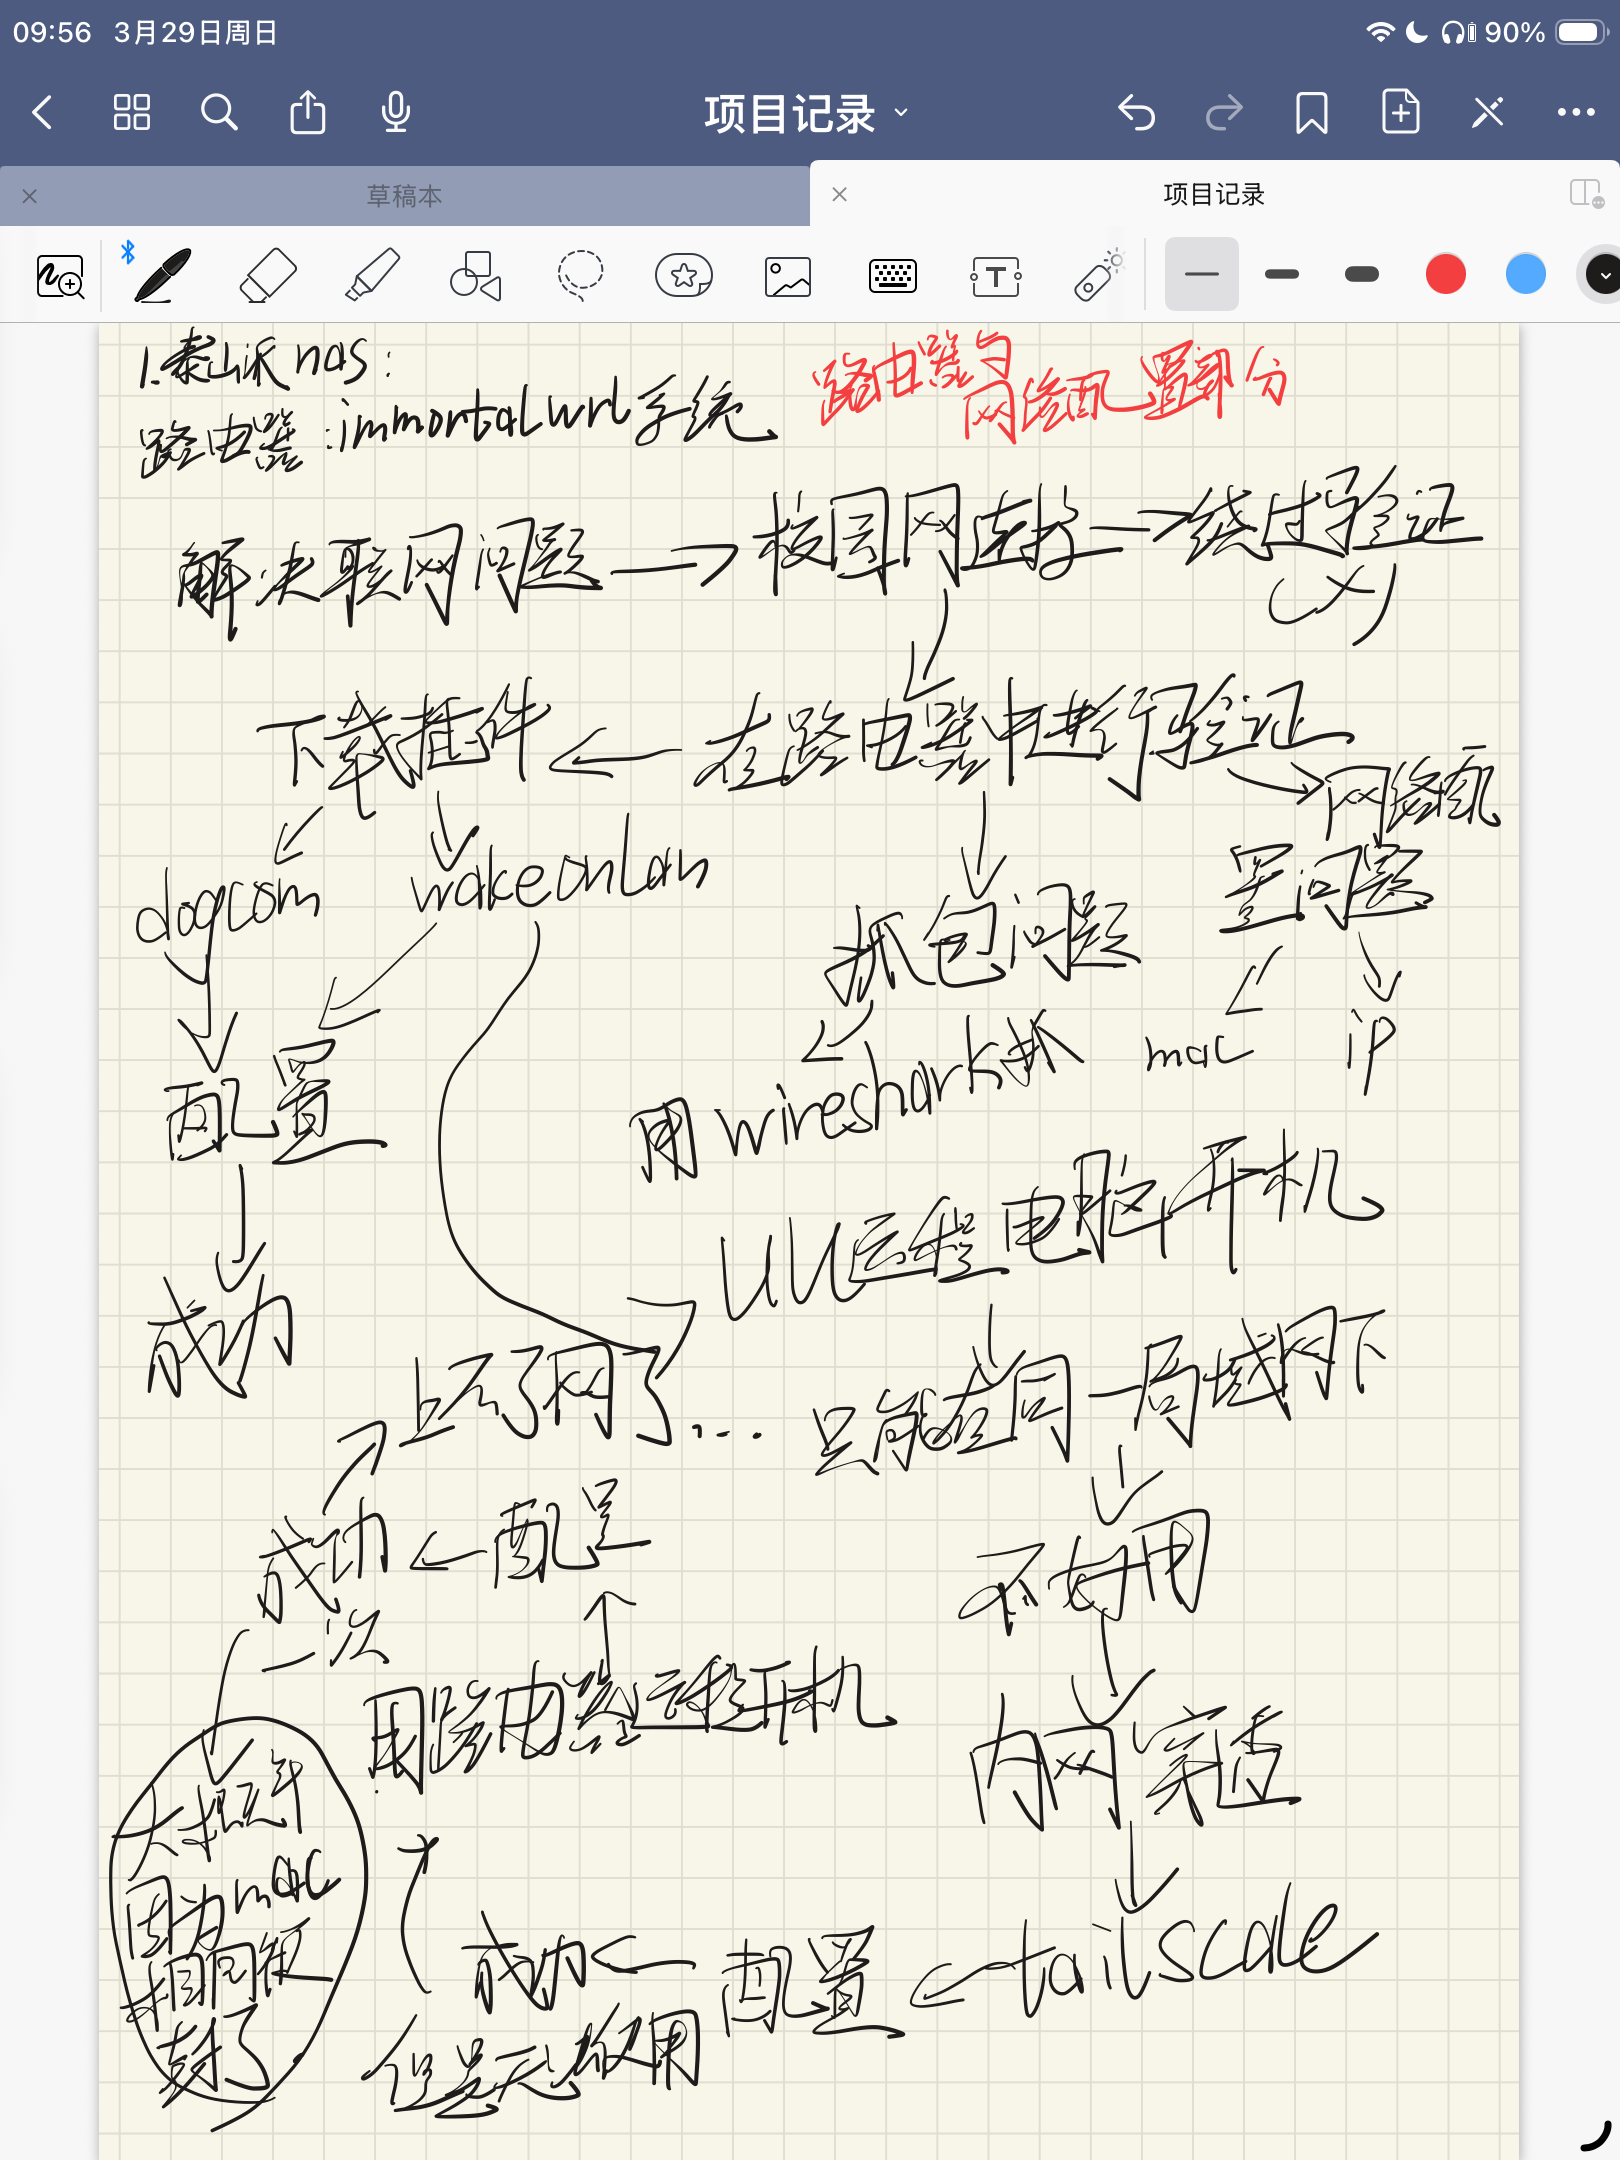 09:56 3月29日周日
90%
项目记录
草稿本
项目记录
1.泰山派nas:
路由器与
网络配置部分
路由器:immortalwrt系统
解决联网问题 → 校园网连接 → 绕过验证
(×)
下载插件 ← 在路由器中进行验证
→ 网络配
置问题
dogcom
wakeonlan
抓包问题
mac
ip
用wireshark抓
配置
UU远程电脑开机
成功
上不了网了...
只能在同一局域网下
成功 ← 配置
一次
不好用
用路由器远程开机
内网穿透
大概率
因为mac
相同被
封了
tailscale
成功 ← 配置 ←
但是无法使用